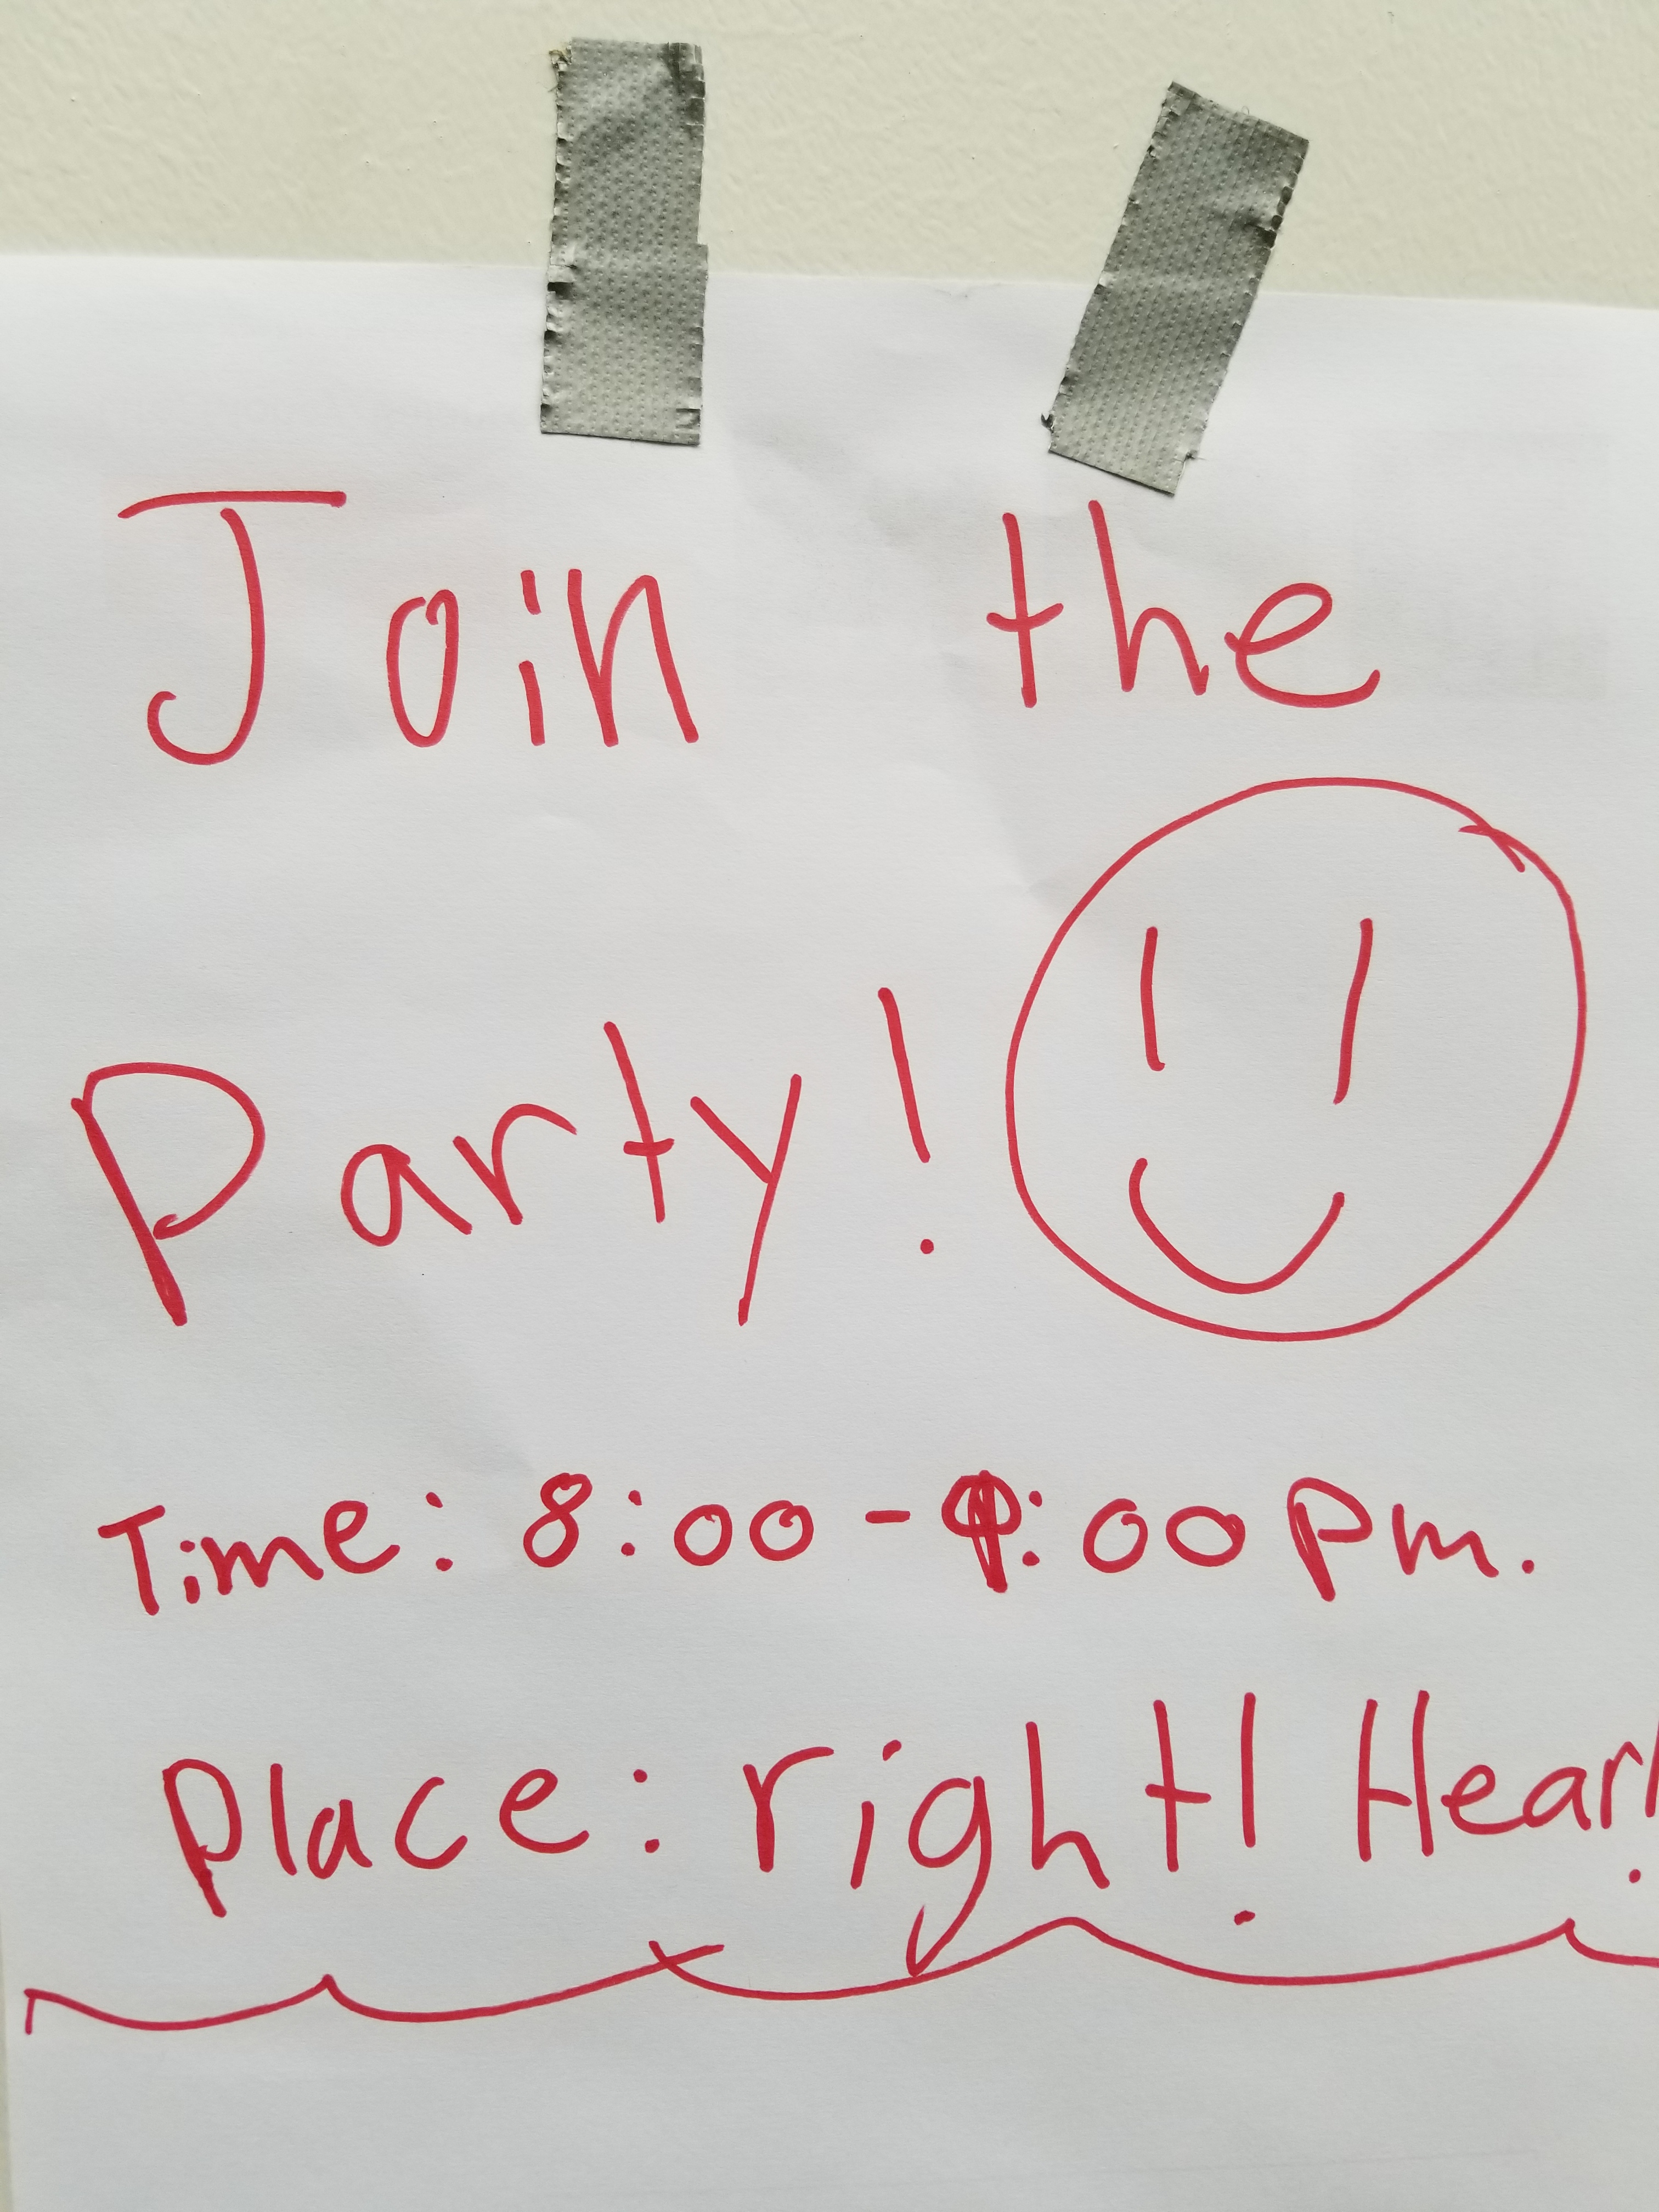 Join the
Party!
Time: 8:00-9:00 pm.
Place: right! Hear!